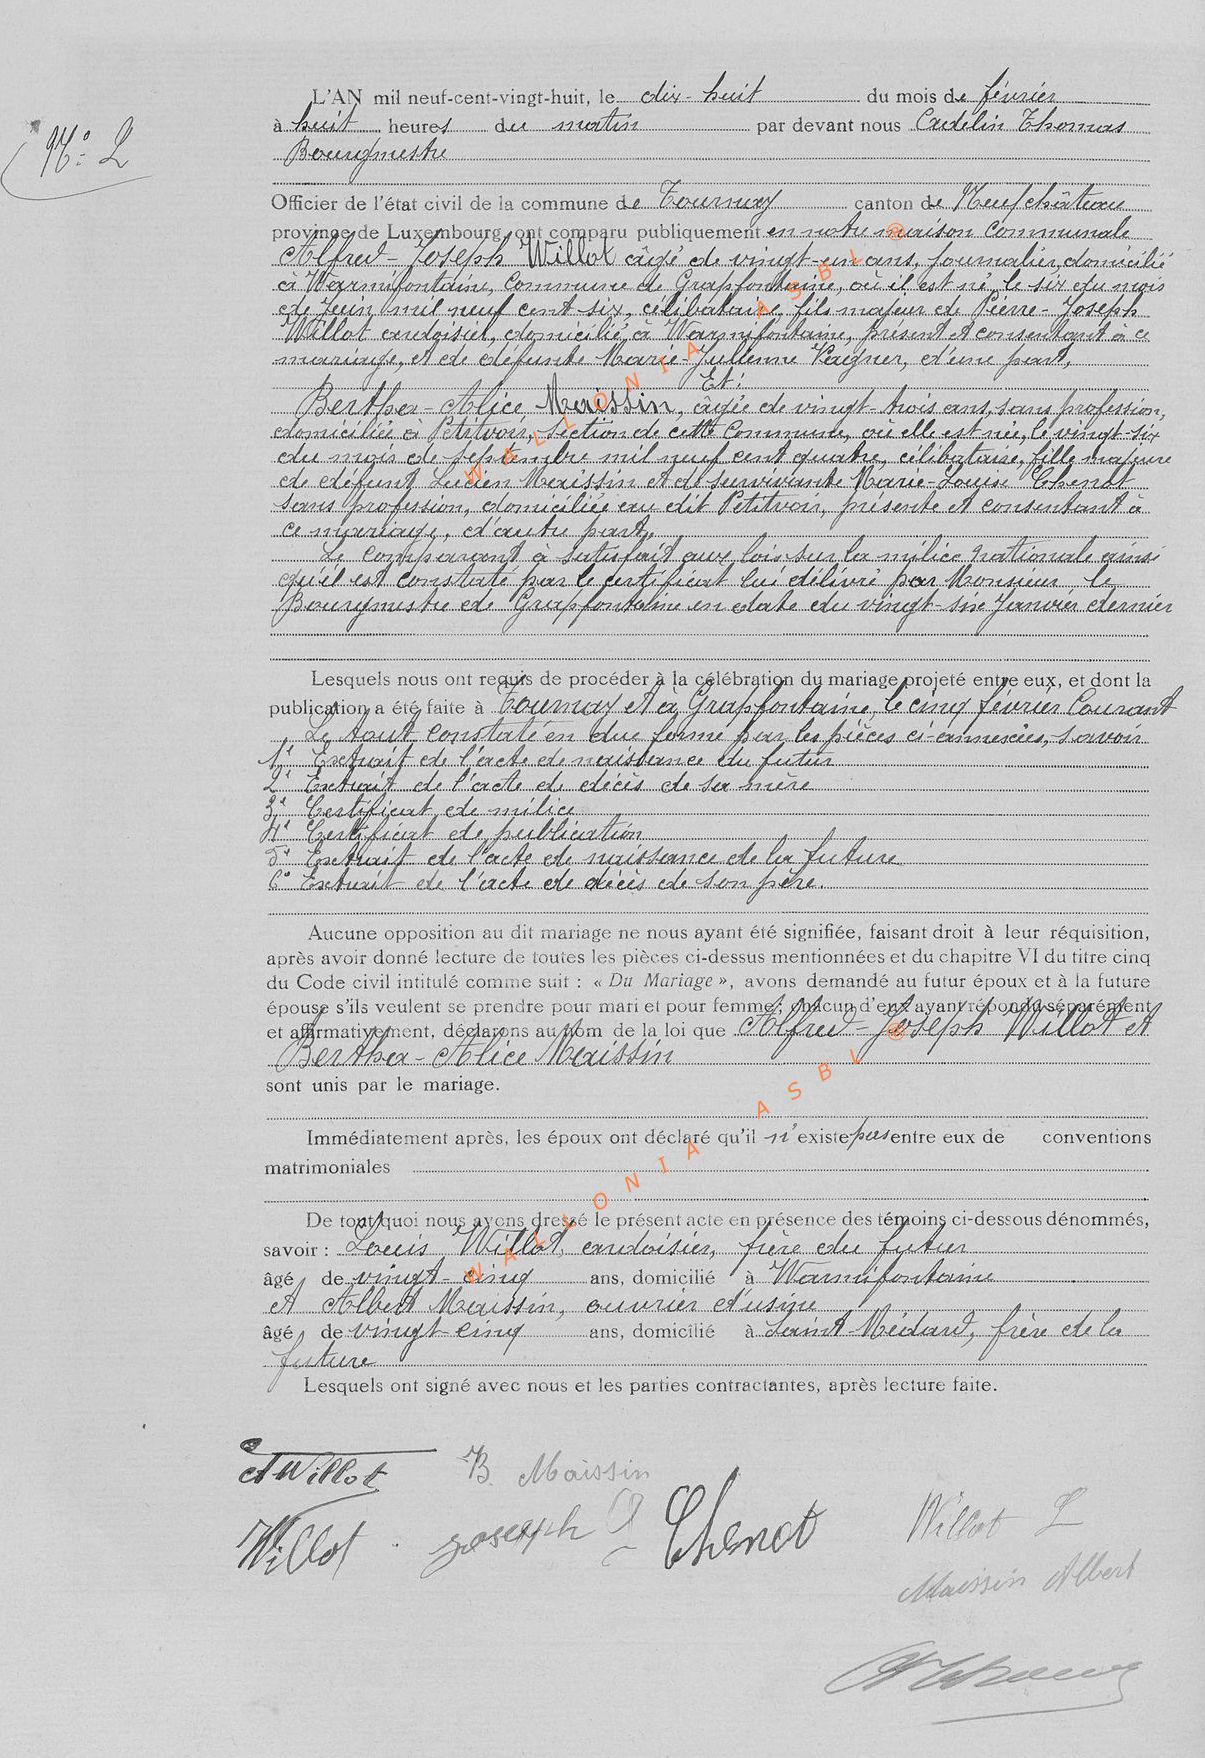 N° 2
L'AN mil neuf-cent-vingt-huit, le dix-huit du mois de février
à huit heures du matin par devant nous Cadelin Thomas
Bourgmestre
Officier de l'état civil de la commune de Tournay canton de Neufchâteau
province de Luxembourg, ont comparu publiquement en notre maison communale
Alfred-Joseph Willot âgé de vingt-un ans, journalier, domicilié
à Warmifontaine, Commune de Grapfontaine, où il est né, le six du mois
de Juin mil neuf cent six, célibataire, fils majeur de Pierre-Joseph
Willot ardoisier, domicilié à Warmifontaine, présent et consentant à ce
mariage, et de défunte Marie-Julienne Pagner, d'une part,
Et:
Bertha-Alice Maissin, âgée de vingt-trois ans, sans profession,
domiciliée à Petitvoir, section de cette Commune, où elle est née, le vingt-six
du mois de septembre mil neuf cent quatre, célibataire, fille majeure
de défunt Lucien Maissin et de survivante Marie-Louise Chenot
sans profession, domiciliée au dit Petitvoir, présente et consentant à
ce mariage, d'autre part.
Le comparant à satisfait aux lois sur la milice nationale ainsi
qu'il est constaté par le certificat lui délivré par Monsieur le
Bourgmestre de Grapfontaine en date du vingt-six Janvier dernier
Lesquels nous ont requis de procéder à la célébration du mariage projeté entre eux, et dont la
publication a été faite à Tournay et à Grapfontaine, le cinq février Courant
Le tout constaté en due forme par les pièces ci-annexées, savoir
1° Extrait de l'acte de naissance du futur
2° Extrait de l'acte de décès de sa mère
3° Certificat de milice
4° Certificat de publication
5° Extrait de l'acte de naissance de la future
6° Extrait de l'acte de décès de son père.
Aucune opposition au dit mariage ne nous ayant été signifiée, faisant droit à leur réquisition,
après avoir donné lecture de toutes les pièces ci-dessus mentionnées et du chapitre VI du titre cinq
du Code civil intitulé comme suit : « Du Mariage », avons demandé au futur époux et à la future
épouse s'ils veulent se prendre pour mari et pour femme; chacun d'eux ayant répondu séparément
et affirmativement, déclarons au nom de la loi que Alfred-Joseph Willot et
Bertha-Alice Maissin
sont unis par le mariage.
Immédiatement après, les époux ont déclaré qu'il n'existe pas entre eux de conventions
matrimoniales
De tout quoi nous avons dressé le présent acte en présence des témoins ci-dessous dénommés,
savoir : Louis Willot, ardoisier, frère du futur
âgé de vingt-cinq ans, domicilié à Warmifontaine
et Albert Maissin, ouvrier d'usine
âgé de vingt-cinq ans, domicilié à Saint-Médard, frère de la
future
Lesquels ont signé avec nous et les parties contractantes, après lecture faite.
A Willot B. Maissin
Willot Joseph Chenot Willot L
Maissin Albert
WALLONIA ASBL ®
WALLONIA ASBL ®